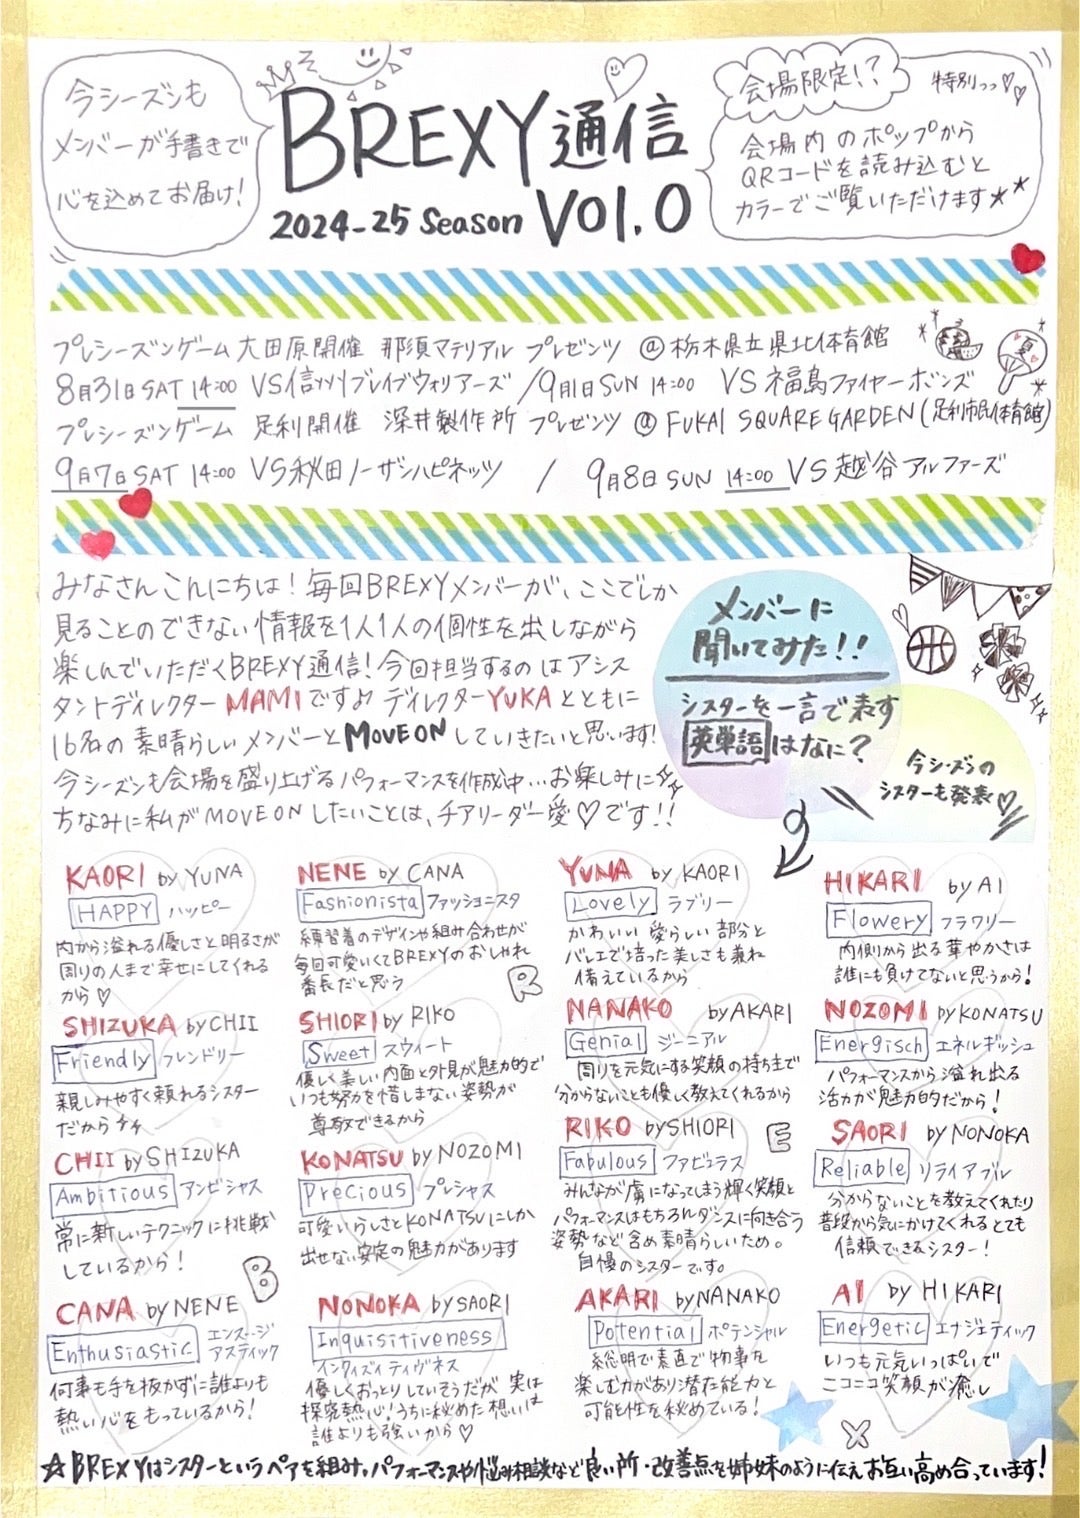 今シーズンも
メンバーが手書きで
心を込めてお届け！
BREXY通信
2024-25 Season Vol.0
会場限定!?
特別っっ♡♡
会場内のポップから
QRコードを読み込むと
カラーでご覧いただけます★★
プレシーズンゲーム大田原開催 那須マテリアル プレゼンツ @栃木県立県北体育館
8月31日SAT 14:00 VS信州ブレイブウォリアーズ/9月1日SUN 14:00 VS福島ファイヤーボンズ
プレシーズンゲーム 足利開催 深井製作所 プレゼンツ @ FUKAI SQUARE GARDEN(足利市民体育館)
9月7日SAT 14:00 VS秋田ノーザンハピネッツ / 9月8日SUN 14:00 VS越谷アルファーズ
夏
みなさんこんにちは！毎回BREXYメンバーが、ここでしか
見ることのできない情報を1人1人の個性を出しながら
楽しんでいただくBREXY通信！今回担当するのはアシス
タントディレクターMAMIです♪ディレクターYUKAとともに
16名の素晴らしいメンバーとMOVE ONしていきたいと思います！
今シーズンも会場を盛り上げるパフォーマンスを作成中…お楽しみに
ちなみに私がMOVE ONしたいことは、チアリーダー愛♡です!!
メンバーに
聞いてみた!!
シスターを一言で表す
英単語はなに？
今シーズンの
シスターも発表♡
KAORI by YUNA
HAPPY ハッピー
内から溢れる優しさと明るさが
周りの人まで幸せにしてくれる
から♡
NENE by CANA
Fashionista ファッショニスタ
練習着のデザインや組み合わせが
毎回可愛いくてBREXYのおしゃれ
番長だと思う
R
YUNA by KAORI
Lovely ラブリー
かわいい愛らしい部分と
バレエで培った美しさも兼ね
備えているから
HIKARI by AI
Flowery フラワリー
内側から出る華やかさは
誰にも負けてないと思うから！
SHIZUKA by CHII
Friendly フレンドリー
親しみやすく頼れるシスター
だから
SHIORI by RIKO
Sweet スウィート
優しく美しい内面と外見が魅力的で
いつも努力を惜しまない姿勢が
尊敬できるから
NANAKO by AKARI
Genial ジーニアル
周りを元気にする笑顔の持ち主で
分からないことも優しく教えてくれるから
NOZOMI by KONATSU
Energisch エネルギッシュ
パフォーマンスから溢れ出る
活力が魅力的だから！
CHII by SHIZUKA
Ambitious アンビシャス
常に新しいテクニックに挑戦
しているから！
B
KONATSU by NOZOMI
Precious プレシャス
可愛いらしさとKONATSUにしか
出せない安定の魅力があります
RIKO by SHIORI
E
Fabulous ファビュラス
みんなが虜になってしまう輝く笑顔と
パフォーマンスはもちろんダンスに向き合う
姿勢など含め素晴らしいため。
自慢のシスターです。
SAORI by NONOKA
Reliable リライアブル
分からないことを教えてくれたり
普段から気にかけてくれるとても
信頼できるシスター！
CANA by NENE
Enthusiastic エンスージアスティック
何事も手を抜かずに誰よりも
熱い心をもっているから！
NONOKA by SAORI
Inquisitiveness
インクィズィティヴネス
優しくおっとりしていそうだが 実は
探究熱心！うちに秘めた想いは
誰よりも強いから♡
AKARI by NANAKO
Potential ポテンシャル
総明で素直で物事を
楽しむ力があり潜在能力と
可能性を秘めている！
X
AI by HIKARI
Energetic エナジェティック
いつも元気いっぱいで
ニコニコ笑顔が癒し
☆BREXYはシスターというペアを組み、パフォーマンスや悩み相談など良い所・改善点を姉妹のように伝えお互い高め合っています！